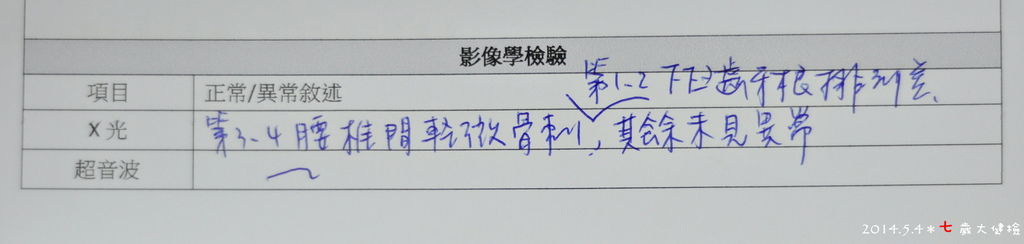 影像學檢驗
項目 正常/異常敘述
第1-2下臼齒牙根排列差、
X光 第3-4腰椎間輕微骨刺，其餘未見異常
超音波
2014.5.4*七歲大健檢